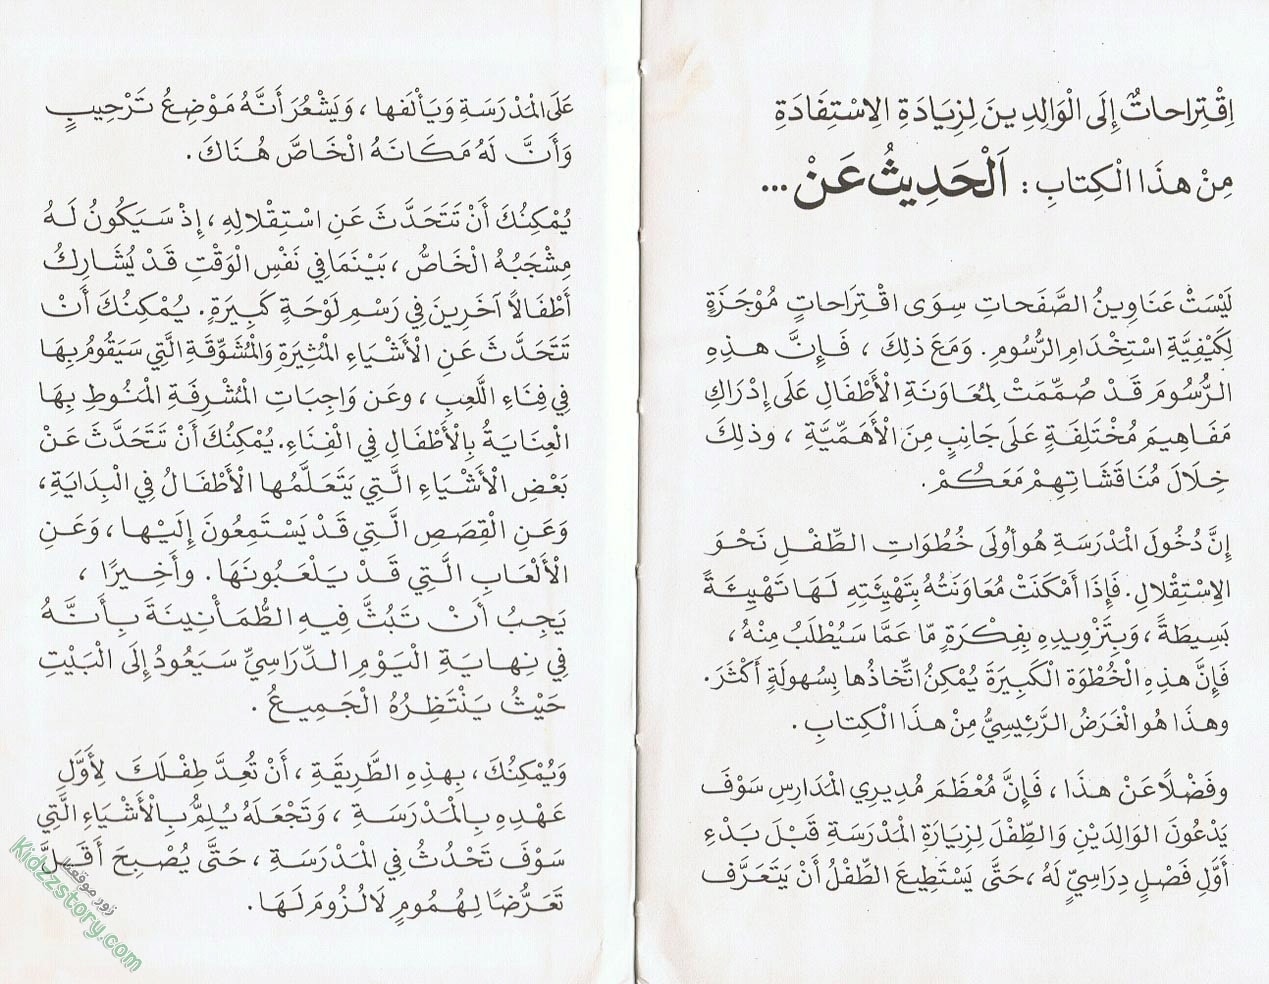 اِقْتِراحاتٌ إِلَى الْوَالِدِينَ لِزِيَادَةِ الاِسْتِفَادَةِ
مِنْ هٰذَا الْكِتابِ : اَلْحَدِيثُ عَنْ ...
لَيْسَتْ عَنَاوِينُ الصَّفَحَاتِ سِوَى اقْتِرَاحَاتٍ مُوْجَزَةٍ
لِكَيْفِيَّةِ اسْتِخْدَامِ الرُّسُومِ . وَمَعَ ذٰلِكَ ، فَإِنَّ هٰذِهِ
الرُّسُومَ قَدْ صُمِّمَتْ لِمُعَاوَنَةِ الْأَطْفَالِ عَلَى إِدْرَاكِ
مَفَاهِيمَ مُخْتَلِفَةٍ عَلَى جَانِبٍ مِنَ الْأَهَمِّيَّةِ ، وَذٰلِكَ
خِلَالَ مُنَاقَشَاتِهِمْ مَعَكُمْ .
إِنَّ دُخُولَ الْمَدْرَسَةِ هُوَ أُولَى خُطُوَاتِ الطِّفْلِ نَحْوَ
الاِسْتِقْلالِ . فَإِذَا أَمْكَنَتْ مُعَاوَنَتُهُ بِتَهْيِئَتِهِ لَهَا تَهْيِئَةً
بَسِيطَةً ، وَبِتَزْوِيدِهِ بِفِكْرَةٍ مّا عَمَّا سَيُطْلَبُ مِنْهُ ،
فَإِنَّ هٰذِهِ الْخُطْوَةَ الْكَبِيرَةَ يُمْكِنُ اتِّخَاذُها بِسُهولَةٍ أَكْثَرَ .
وهٰذَا هُوَ الْغَرَضُ الرَّئِيسِيُّ مِنْ هٰذَا الْكِتابِ .
وفَضْلًا عَنْ هٰذَا ، فَإِنَّ مُعْظَمَ مُدِيرِي الْمَدَارِسِ سَوْفَ
يَدْعُونَ الْوَالِدَيْنِ وَالطِّفْلَ لِزِيَارَةِ الْمَدْرَسَةِ قَبْلَ بَدْءِ
أَوَّلِ فَصْلٍ دِرَاسِيٍّ لَهُ ، حَتَّى يَسْتَطِيعَ الطِّفْلُ أَنْ يَتَعَرَّفَ
عَلَى الْمَدْرَسَةِ وَيَأْلَفها ، وَيَشْعُرَ أَنَّهُ مَوْضِعُ تَرْحِيبٍ
وَأَنَّ لَهُ مَكَانَهُ الْخَاصَّ هُنَاكَ .
يُمْكِنُكَ أَنْ تَتَحَدَّثَ عَنِ اسْتِقْلالِهِ ، إِذْ سَيَكُونُ لَهُ
مِشْجَبُهُ الْخَاصُّ ، بَيْنَمَا فِي نَفْسِ الْوَقْتِ قَدْ يُشَارِكُ
أَطْفَالًا آخَرِينَ فِي رَسْمِ لَوْحَةٍ كَبِيرَةٍ . يُمْكِنُكَ أَنْ
تَتَحَدَّثَ عَنِ الْأَشْيَاءِ الْمُثِيرَةِ وَالْمُشَوِّقَةِ الَّتِي سَيَقُومُ بِهَا
فِي فِنَاءِ اللَّعِبِ ، وَعَن وَاجِبَاتِ الْمُشْرِفَةِ الْمَنُوطِ بِهَا
الْعِنَايَةُ بِالْأَطْفَالِ فِي الْفِنَاءِ . يُمْكِنُكَ أَنْ تَتَحَدَّثَ عَنْ
بَعْضِ الْأَشْيَاءِ الَّتِي يَتَعَلَّمُها الْأَطْفَالُ فِي الْبِدَايَةِ ،
وَعَنِ الْقِصَصِ الَّتِي قَدْ يَسْتَمِعُونَ إِلَيْها ، وَعَنِ
الْأَلْعَابِ الَّتِي قَدْ يَلْعَبُونَهَا . وأَخِيرًا ،
يَجِبُ أَنْ تَبُثَّ فِيهِ الطُّمَأْنِينَةَ بِأَنَّهُ
فِي نِهايَةِ الْيَوْمِ الدِّرَاسِيِّ سَيَعُودُ إِلَى الْبَيْتِ
حَيْثُ يَنْتَظِرُهُ الْجَمِيعُ .
وَيُمْكِنُكَ ، بِهٰذِهِ الطَّرِيقَةِ ، أَنْ تُعِدَّ طِفْلَكَ لِأَوَّلِ
عَهْدِهِ بِالْمَدْرَسَةِ ، وَتَجْعَلَهُ يُلِمُّ بِالْأَشْيَاءِ الَّتِي
سَوْفَ تَحْدُثُ فِي الْمَدْرَسَةِ ، حَتَّى يُصْبِحَ أَقَلَّ
تَعَرُّضًا لِهُمُومٍ لَا لُزُومَ لَهَا .
زور موقعنا
Kidzzstory.com